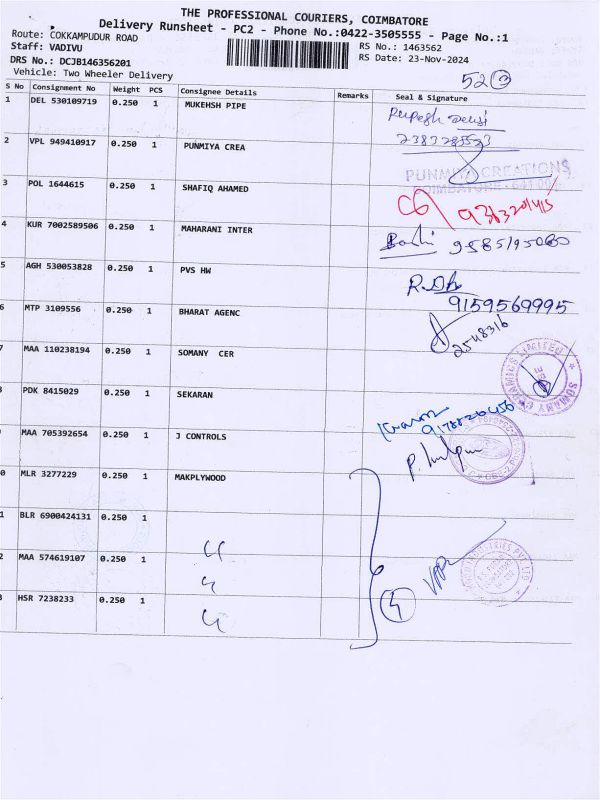 THE PROFESSIONAL COURIERS, COIMBATORE
Delivery Runsheet - PC2 - Phone No.:0422-3505555 - Page No.:1
Route: COKKAMPUDUR ROAD
RS No.: 1463562
Staff: VADIVU
RS Date: 23-Nov-2024
DRS No.: DCJB146356201
Vehicle: Two Wheeler Delivery
52
S No Consignment No Weight PCS Consignee Details Remarks Seal & Signature
1 DEL 530109719 0.250 1 MUKEHSH PIPE
2 VPL 949410917 0.250 1 PUNMIYA CREA
PUNMIYA CREATIONS
3 POL 1644615 0.250 1 SHAFIQ AHAMED
4 KUR 7002589506 0.250 1 MAHARANI INTER
9585195080
5 AGH 530053828 0.250 1 PVS HW
9159569995
6 MTP 3109556 0.250 1 BHARAT AGENC
2548316
7 MAA 110238194 0.250 1 SOMANY CER
8 PDK 8415029 0.250 1 SEKARAN
9 MAA 705392654 0.250 1 J CONTROLS
0 MLR 3277229 0.250 1 MAKPLYWOOD
1 BLR 6900424131 0.250 1
2 MAA 574619107 0.250 1
3 HSR 7238233 0.250 1
4